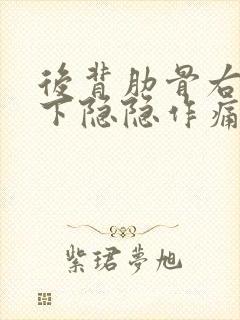 後背肋骨右
下隐隐作痛
紫珺夢旭